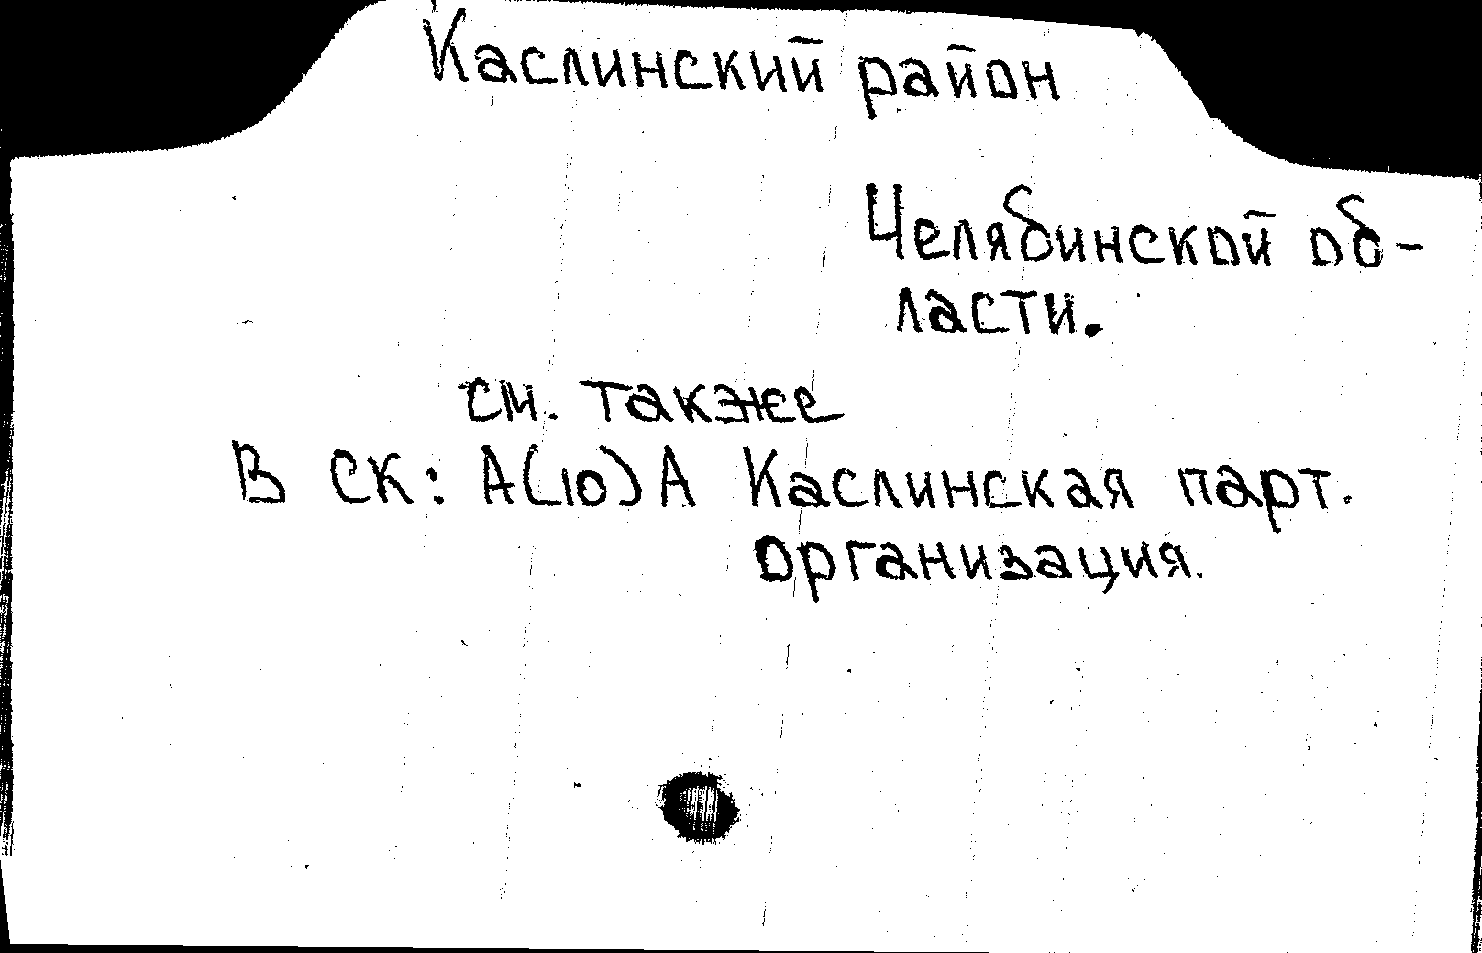 Каслинский район
Челябинской об-
ласти.
см. также
В СК: А(10)А Каслинская парт.
организация.